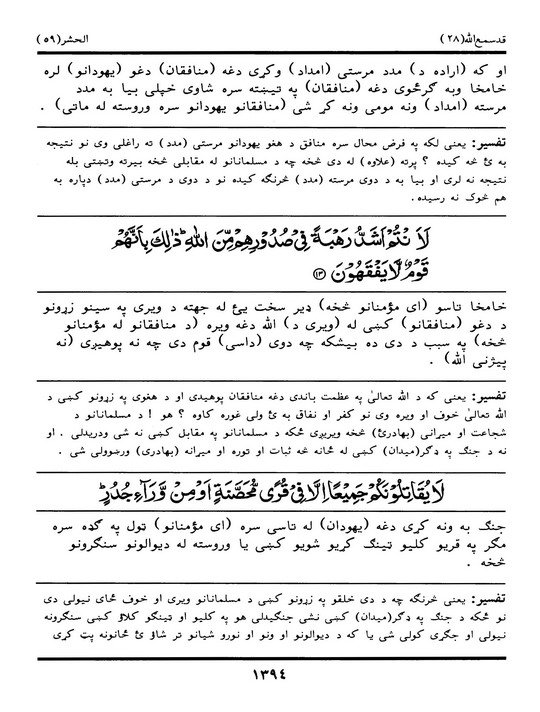 قدسمع الله(٢٨) الحشر(٥٩)
او که (اراده د) مدد مرستی (امداد) وکړی دغه (منافقان) دغو (یهودانو) لره
خامخا وبه ګرځوی دغه (منافقان) په تیښته سره شاوی خپلی بیا به مدد
مرسته (امداد) ونه مومی ونه کړ شی (منافقانو یهودانو سره وروسته له ماتی) .
تفسیر: یعنی لکه په فرض محال سره منافق د هغو یهودانو مرستی (مدد) ته راغلی وی نو نتیجه
به یٔ څه کیده ؟ پرته (علاوه) له دی څخه چه د مسلمانانو له مقابلی څخه بیرته وتښتی بله
نتیجه نه لری او بیا به د دوی مرسته (مدد) څرنګه کیده نو د دوی د مرستی (مدد) دپاره به
هم څوک نه رسیده.
لَا َنْتُمْ اَشَدُّ رَهْبَةً فِيْ صُدُوْرِهِمْ مِّنَ اللّٰهِ ذٰلِكَ بِاَنَّهُمْ
قَوْمٌ لَّا يَفْقَهُوْنَ ﴿١٣﴾
خامخا تاسو (ای مؤمنانو څخه) ډیر سخت یئ له جهته د ویری په سینو زړونو
د دغو (منافقانو) کښی له (ویری د) الله دغه ویره (د منافقانو له مؤمنانو
څخه) په سبب د دی ده بیشکه چه دوی (داسی) قوم دی چه نه پوهیږی (نه
پیژنی الله) .
تفسیر: یعنی که د الله تعالیٰ په عظمت باندی دغه منافقان پوهیدی او د هغوی په زړونو کښی د
الله تعالیٰ خوف او ویره وی نو کفر او نفاق به یٔ ولی غوره کاوه ؟ هو ! د مسلمانانو د
شجاعت او میرانی (بهادرئ) څخه ویریږی ځکه د مسلمانانو په مقابل کښی نه شی ودریدلی . او
نه د جنګ په ډګر(میدان) کښی له ځانه څه ثبات او توره او میرانه (بهادری) ورښوولی شی .
لَا يُقَاتِلُوْنَكُمْ جَمِيْعًا اِلَّا فِيْ قُرًى مُّحَصَّنَةٍ اَوْ مِنْ وَّرَآءِ جُدُرٍ
جنګ به ونه کړی دغه (یهودان) له تاسی سره (ای مؤمنانو) ټول په ګډه سره
مګر په قریو کلیو ټینګ کړیو شویو کښی یا وروسته له دیوالونو سنګرونو
څخه .
تفسیر: یعنی څرنګه چه د دی خلقو په زړونو کښی د مسلمانانو ویری او خوف ځای نیولی دی
نو ځکه د جنګ په ډګر(میدان) کښی نشی جنګیدلی هو په کلیو او ټینګو کلاؤ کښی سنګرونه
نیولی او جګړی کولی شی یا که د دیوالونو او ونو او نورو شیانو تر شاؤ یٔ ځانونه پټ کړی
١٣٩٤